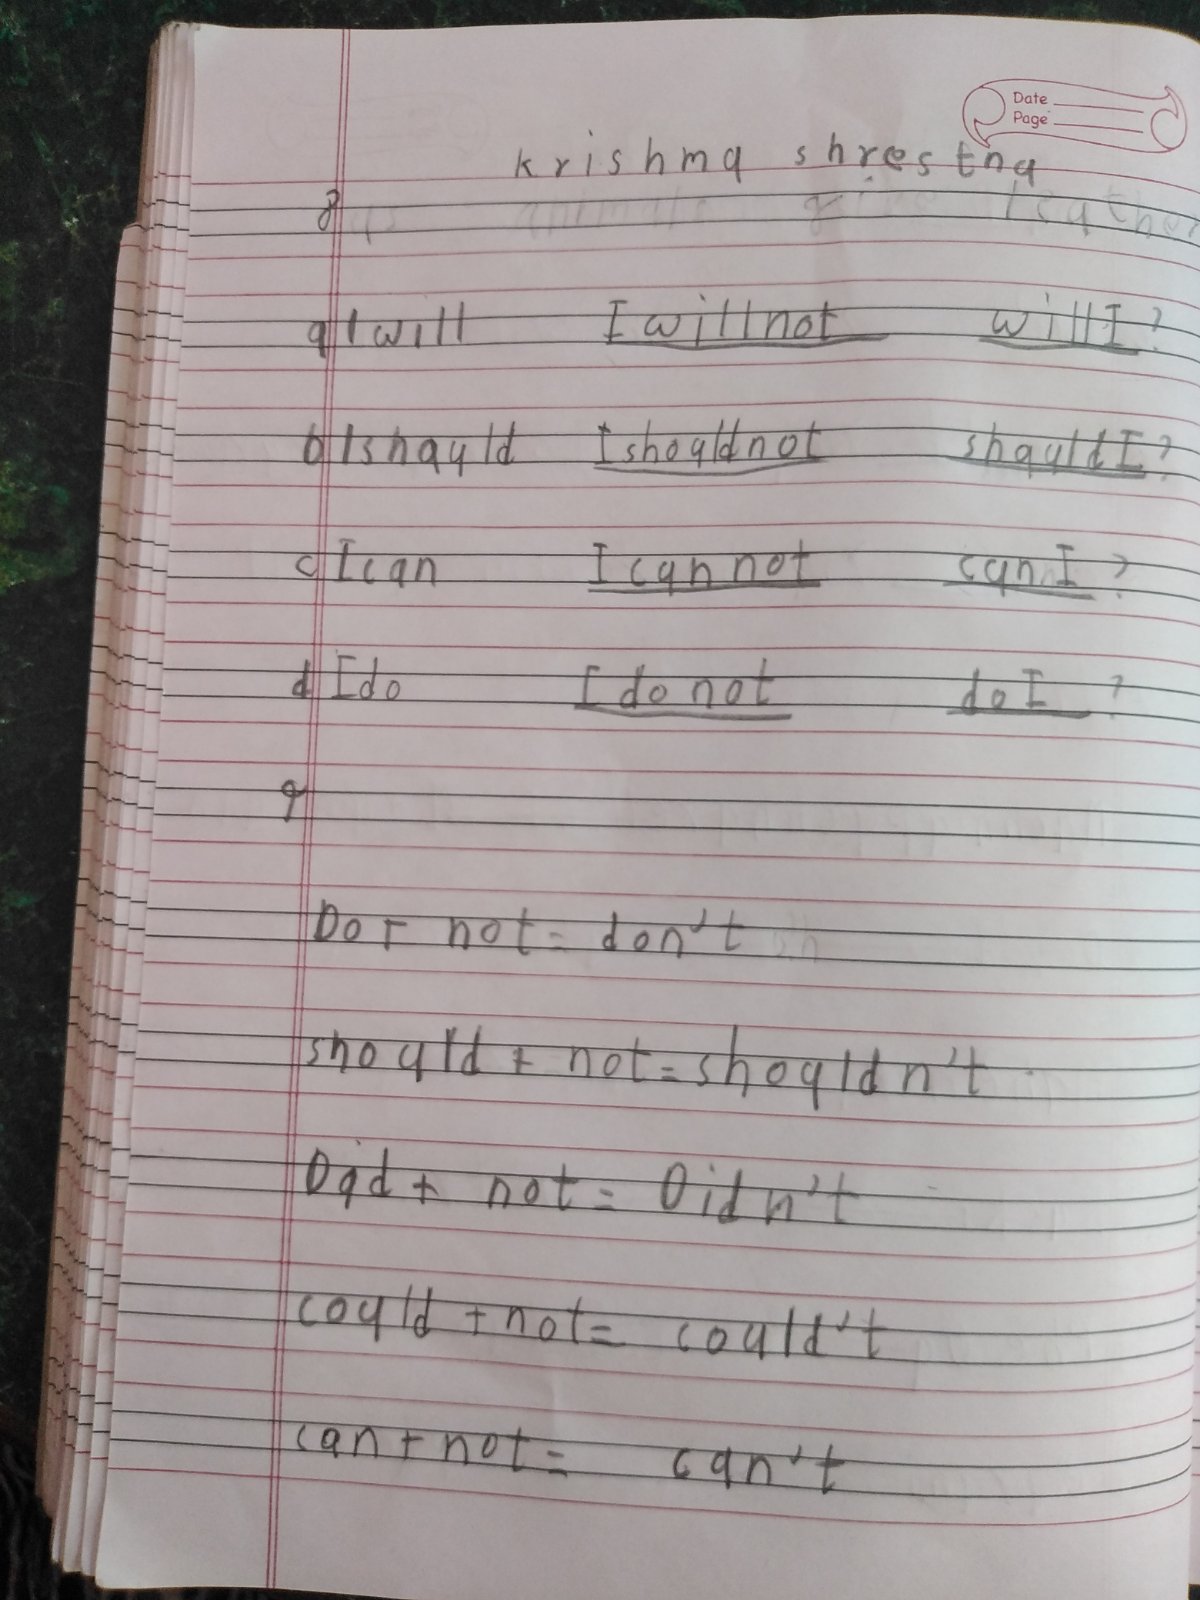 Date
Page
krishma shrestha
8
a I will I will not will I ?
b I shauld I should not shauld I ?
c I can I can not can I ?
d I do I do not do I ?
9
Do + not = don't
should + not = shouldn't
Did + not = Didn't
could + not = could't
can + not = can't